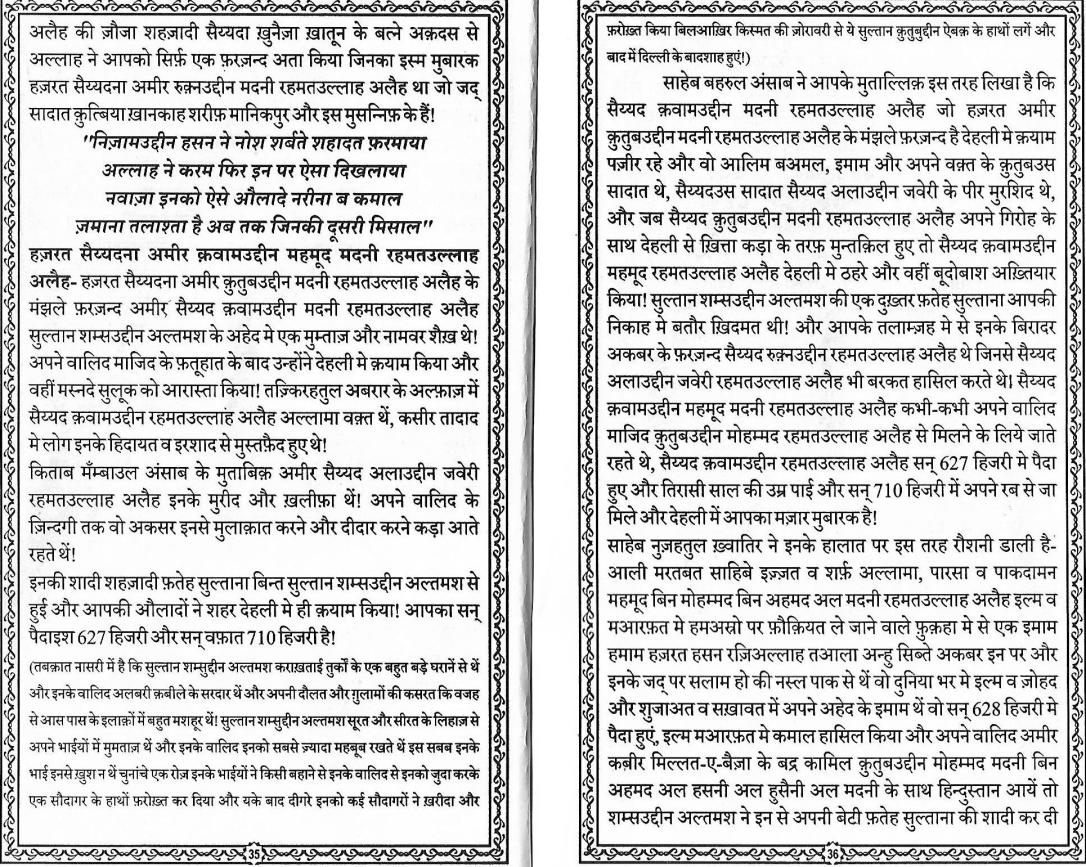 अलैह की ज़ौजा शहज़ादी सैय्यदा ख़ुनैज़ा ख़ातून के बत्ने अक़दस से
अल्लाह ने आपको सिर्फ़ एक फ़रज़न्द अता किया जिनका इस्म मुबारक
हज़रत सैय्यदना अमीर रुक़्नउद्दीन मदनी रहमतउल्लाह अलैह था जो जद्
सादात क़ुत्बिया ख़ानकाह शरीफ़ मानिकपुर और इस मुसन्निफ़ के हैं!
"निज़ामउद्दीन हसन ने नोश शर्बते शहादत फ़रमाया
अल्लाह ने करम फिर इन पर ऐसा दिखलाया
नवाज़ा इनको ऐसे औलादे नरीना ब कमाल
ज़माना तलाश्ता है अब तक जिनकी दूसरी मिसाल"
हज़रत सैय्यदना अमीर क़वामउद्दीन महमूद मदनी रहमतउल्लाह
अलैह- हज़रत सैय्यदना अमीर क़ुतुबउद्दीन मदनी रहमतउल्लाह अलैह के
मंझले फ़रज़न्द अमीर सैय्यद क़वामउद्दीन मदनी रहमतउल्लाह अलैह
सुल्तान शम्सउद्दीन अल्तमश के अहेद मे एक मुम्ताज़ और नामवर शैख़ थे!
अपने वालिद माजिद के फ़तूहात के बाद उन्होंने देहली मे क़याम किया और
वहीं मस्नदे सुलूक को आरास्ता किया! तज़्किरहतुल अबरार के अल्फ़ाज़ में
सैय्यद क़वामउद्दीन रहमतउल्लाह अलैह अल्लामा वक़्त थें, कसीर तादाद
मे लोग इनके हिदायत व इरशाद से मुस्तफ़ैद हुए थे!
किताब मँम्बाउल अंसाब के मुताबिक़ अमीर सैय्यद अलाउद्दीन जवेरी
रहमतउल्लाह अलैह इनके मुरीद और ख़लीफ़ा थें! अपने वालिद के
ज़िन्दगी तक वो अकसर इनसे मुलाक़ात करने और दीदार करने कड़ा आते
रहते थें!
इनकी शादी शहज़ादी फ़तेह सुल्ताना बिन्त सुल्तान शम्सउद्दीन अल्तमश से
हुई और आपकी औलादों ने शहर देहली मे ही क़याम किया! आपका सन्
पैदाइश 627 हिजरी और सन् वफ़ात 710 हिजरी है!
(तबक़ात नासरी में है कि सुल्तान शम्सुद्दीन अल्तमश कराख़ताई तुर्कों के एक बहुत बड़े घरानें से थें
और इनके वालिद अलबरी क़बीले के सरदार थें और अपनी दौलत और ग़ुलामों की कसरत कि वजह
से आस पास के इलाक़ों में बहुत मशहूर थें! सुल्तान शम्सुद्दीन अल्तमश सूरत और सीरत के लिहाज़ से
अपने भाईयों में मुमताज़ थें और इनके वालिद इनको सबसे ज़्यादा महबूब रखते थें इस सबब इनके
भाई इनसे ख़ुश न थें चुनांचे एक रोज़ इनके भाईयों ने किसी बहाने से इनके वालिद से इनको जुदा करके
एक सौदागर के हाथों फ़रोख़्त कर दिया और यके बाद दीगरे इनको कई सौदागरों ने ख़रीदा और
35
फ़रोख़्त किया बिलआख़िर किस्मत की ज़ोरावरी से ये सुल्तान क़ुतुबुद्दीन ऐबक़ के हाथों लगें और
बाद में दिल्ली के बादशाह हुएं!)
साहेब बहरुल अंसाब ने आपके मुताल्लिक़ इस तरह लिखा है कि
सैय्यद क़वामउद्दीन मदनी रहमतउल्लाह अलैह जो हज़रत अमीर
क़ुतुबउद्दीन मदनी रहमतउल्लाह अलैह के मंझले फ़रज़न्द है देहली मे क़याम
पज़ीर रहे और वो आलिम बअमल, इमाम और अपने वक़्त के क़ुतुबउस
सादात थे, सैय्यदउस सादात सैय्यद अलाउद्दीन जवेरी के पीर मुरशिद थे,
और जब सैय्यद क़ुतुबउद्दीन मदनी रहमतउल्लाह अलैह अपने गिरोह के
साथ देहली से ख़ित्ता कड़ा के तरफ़ मुन्तक़िल हुए तो सैय्यद क़वामउद्दीन
महमूद रहमतउल्लाह अलैह देहली मे ठहरे और वहीं बूदोबाश अख़्तियार
किया! सुल्तान शम्सउद्दीन अल्तमश की एक दुख़्तर फ़तेह सुल्ताना आपकी
निकाह मे बतौर ख़िदमत थी! और आपके तलामज़ह मे से इनके बिरादर
अकबर के फ़रज़न्द सैय्यद रुक़्नउद्दीन रहमतउल्लाह अलैह थे जिनसे सैय्यद
अलाउद्दीन जवेरी रहमतउल्लाह अलैह भी बरकत हासिल करते थे! सैय्यद
क़वामउद्दीन महमूद मदनी रहमतउल्लाह अलैह कभी-कभी अपने वालिद
माजिद क़ुतुबउद्दीन मोहम्मद रहमतउल्लाह अलैह से मिलने के लिये जाते
रहते थे, सैय्यद क़वामउद्दीन रहमतउल्लाह अलैह सन् 627 हिजरी मे पैदा
हुए और तिरासी साल की उम्र पाई और सन् 710 हिजरी में अपने रब से जा
मिले और देहली में आपका मज़ार मुबारक है!
साहेब नुज़हतुल ख़्वातिर ने इनके हालात पर इस तरह रौशनी डाली है-
आली मरतबत साहिबे इज़्ज़त व शर्फ़ अल्लामा, पारसा व पाकदामन
महमूद बिन मोहम्मद बिन अहमद अल मदनी रहमतउल्लाह अलैह इल्म व
मआरफ़त मे हमअस्रो पर फ़ौक़ियत ले जाने वाले फ़ुक़हा मे से एक इमाम
हमाम हज़रत हसन रज़िअल्लाह तआला अन्हु सिब्ते अकबर इन पर और
इनके जद् पर सलाम हो की नस्ल पाक से थें वो दुनिया भर मे इल्म व ज़ोहद
और शुजाअत व सख़ावत में अपने अहेद के इमाम थें वो सन् 628 हिजरी मे
पैदा हुएं, इल्म मआरफ़त मे कमाल हासिल किया और अपने वालिद अमीर
कबीर मिल्लत-ए-बैज़ा के बद्र कामिल क़ुतुबउद्दीन मोहम्मद मदनी बिन
अहमद अल हसनी अल हुसैनी अल मदनी के साथ हिन्दुस्तान आयें तो
शम्सउद्दीन अल्तमश ने इन से अपनी बेटी फ़तेह सुल्ताना की शादी कर दी
36